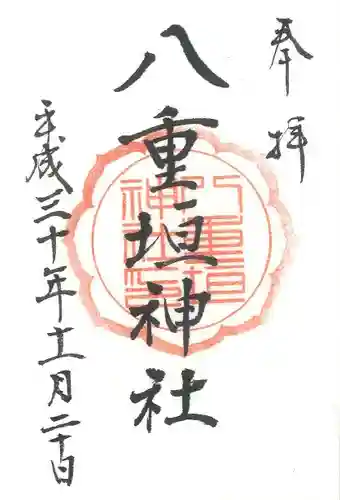 奉拝
八重垣神社
八重垣神社印
平成三十年十一月二十日